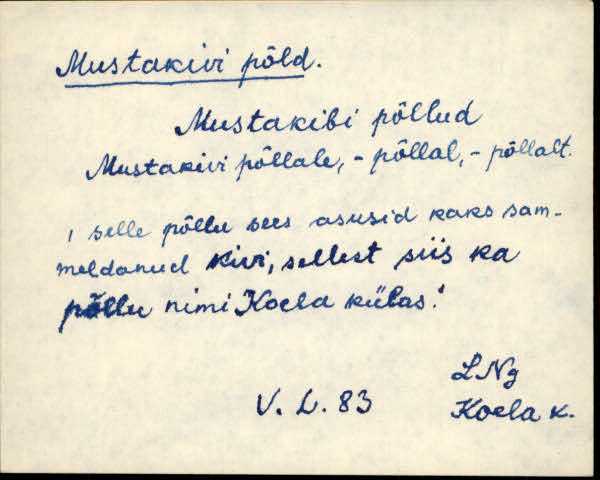 Mustakivi põld.
Mustakibi põllud
Mustakivi põllale, - põllal, - põllalt.
, selle põllu sees asusid kaks sam-
meldanud kivi, sellest siis ka
põllu nimi Koela külas.'
LNg
V. L. 83
Koela k.